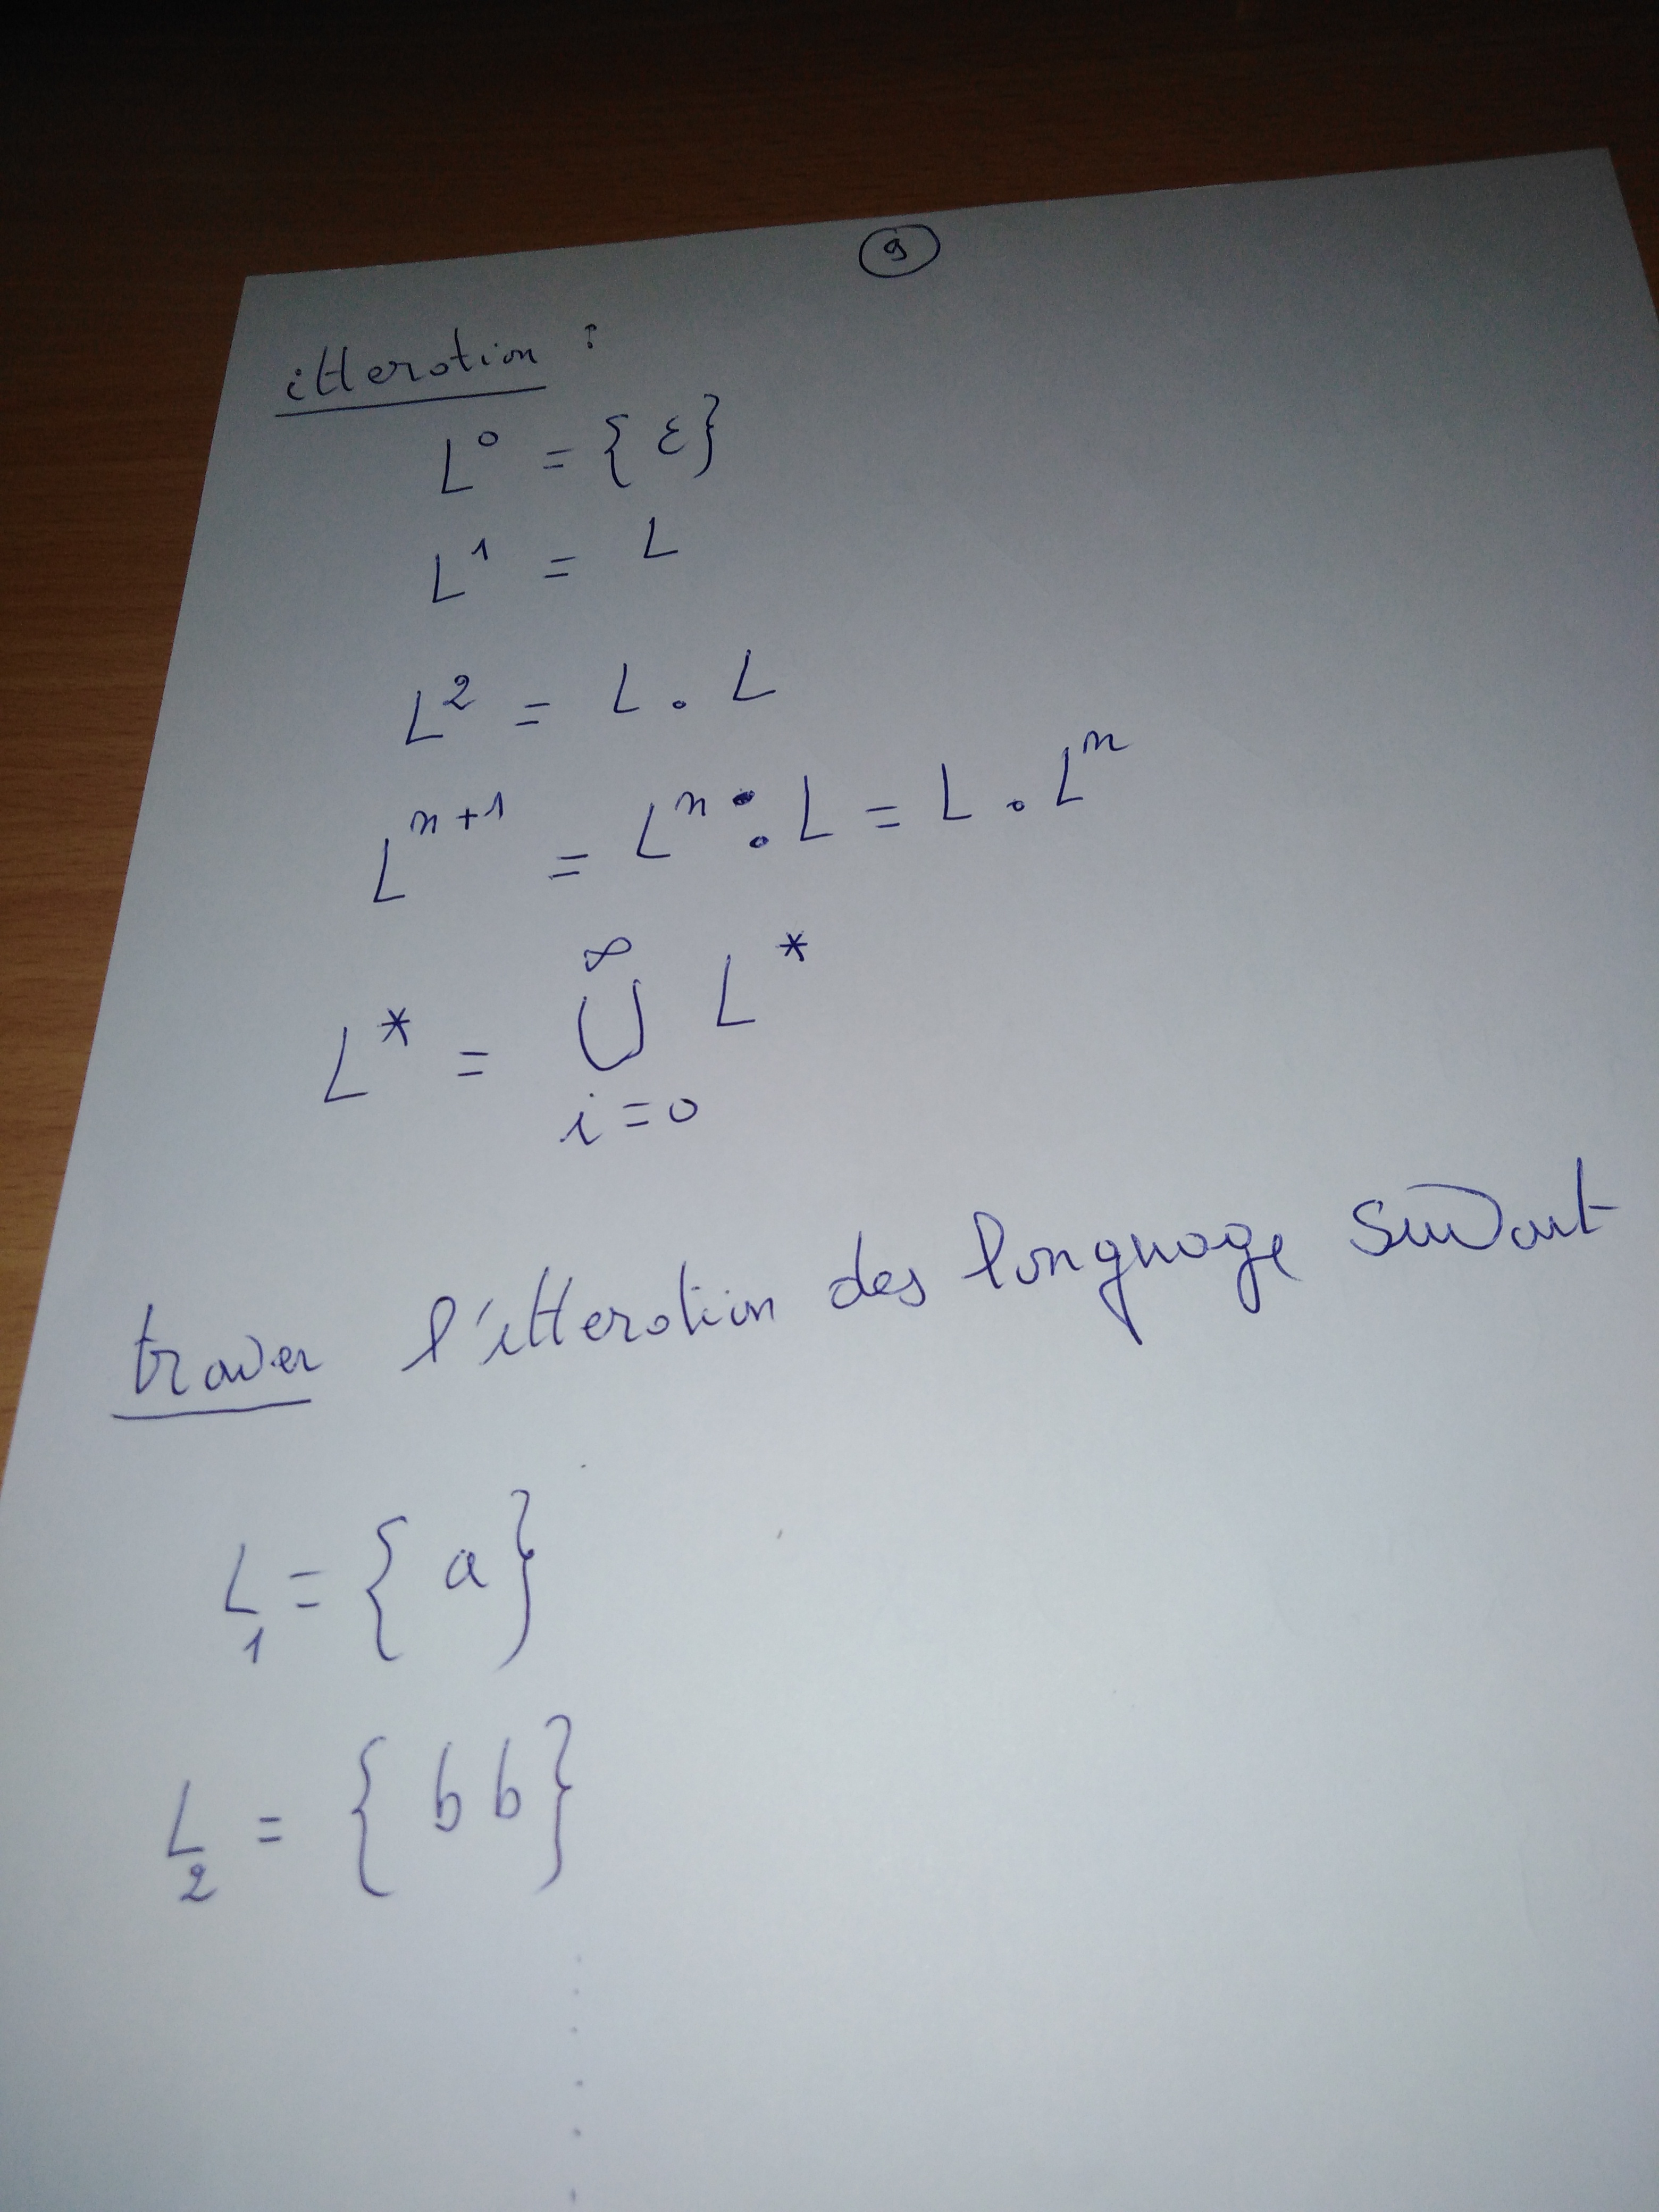 9
itteration :
L⁰ = { ε }
L¹ = L
L² = L . L
Lⁿ⁺¹ = Lⁿ . L = L . Lⁿ
L* = ∞ ∪ i=0 L*
trouver l'itteration des language suivant
L₁ = { a }
L₂ = { b b }